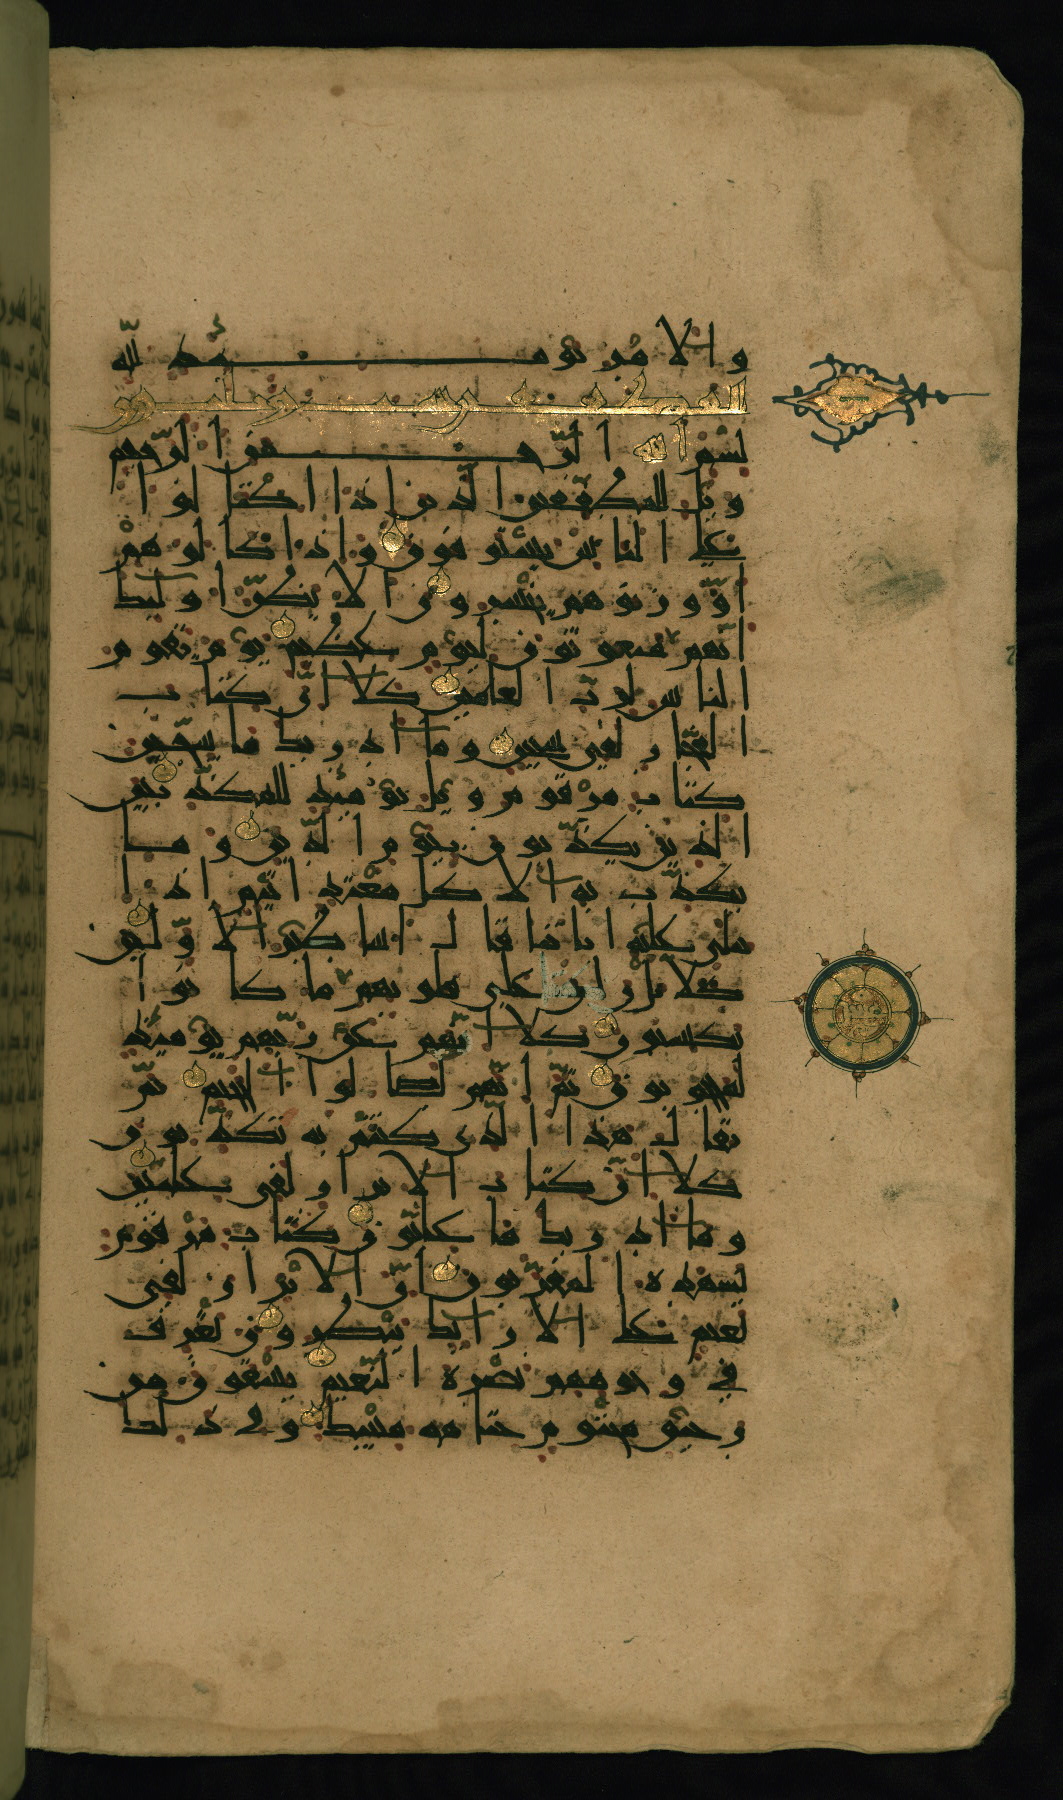 والامر يومئذ لله
المطففين
بسم الله الرحمن الرحيم
ويل للمطففين الذين اذا اكتالوا
على الناس يستوفون واذا كالوهم
او وزنوهم يخسرون الا يظن اولئك
انهم مبعوثون ليوم عظيم يوم يقوم
الناس لرب العالمين كلا ان كتاب
الفجار لفي سجين وما ادريك ما سجين
كتاب مرقوم ويل يومئذ للمكذبين
الذين يكذبون بيوم الدين وما
يكذب به الا كل معتد اثيم اذا
تتلى عليه اياتنا قال اساطير الاولين
كلا بل ران على قلوبهم ما كانوا
يكسبون كلا انهم عن ربهم يومئذ
لمحجوبون ثم انهم لصالوا الجحيم ثم
يقال هذا الذي كنتم به تكذبون
كلا ان كتاب الابرار لفي عليين
وما ادريك ما عليون كتاب مرقوم
يشهده المقربون ان الابرار لفي
نعيم على الارائك ينظرون تعرف
في وجوههم نضرة النعيم يسقون من
رحيق مختوم ختامه مسك وفي ذلك